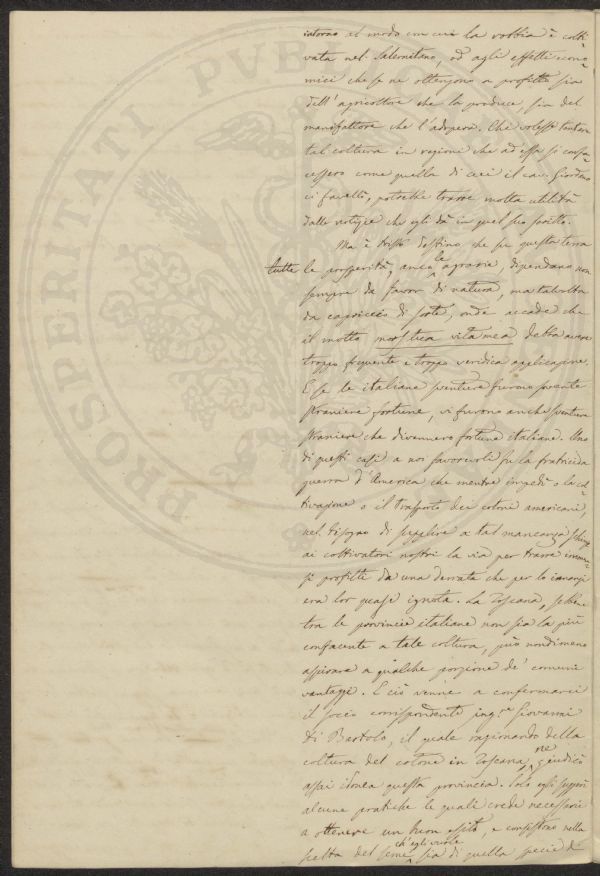 intorno al modo con cui la robbia è colti-
vata nel Salernitano, ed agli effetti econo-
mici che se ne ottengono a profitto sia
dell'agricoltore che la produce, sia del
manifattore che l'adopera. Chi volesse tentare
tal coltura in regione che ad essa si confa-
cesse come quella di cui il cav. Giordano
ci favellò, potrebbe trarre molta utilità
dalle notizie che egli dà in quel suo scritto.
Ma è destino, che su questa terra
tutte le prosperità, anco le agrarie, dipendano non
sempre da favor di natura, ma talvolta
da capriccio di sorte, onde accade che
il motto mors tua vita mea debba avere
troppo frequente e troppo veridica applicazione.
E se le italiane sventure furono sovente
straniere fortune, vi furono anche sventure
straniere che divennero fortune italiane. Uno
di questi casi a noi favorevoli fu la fratricida
guerra d'America che mentre impedì o la col-
tivazione o il trasporto dei cotoni americani,
nel bisogno di supplire a tal mancanza schiuse
ai coltivatori nostri la via per trarre immen-
si profitti da una derrata che per lo innanzi
era lor quasi ignota. La Toscana, sebbene
tra le provincie italiane non sia la più
confacente a tale coltura, può nondimeno
aspirare a qualche porzione de' comuni
vantaggi. E ciò venne a confermarci
il socio corrispondente ing.re Giovanni
Di Bartolo, il quale ragionando della
coltura del cotone in Toscana, ne giudicò
assai idonea questa provincia. Solo egli suggerì
alcune pratiche le quali crede necessarie
a ottenere un buon esito, e consistono nella
scelta del seme ch'egli vuole sia di quella specie d
PROSPERITATI PVB